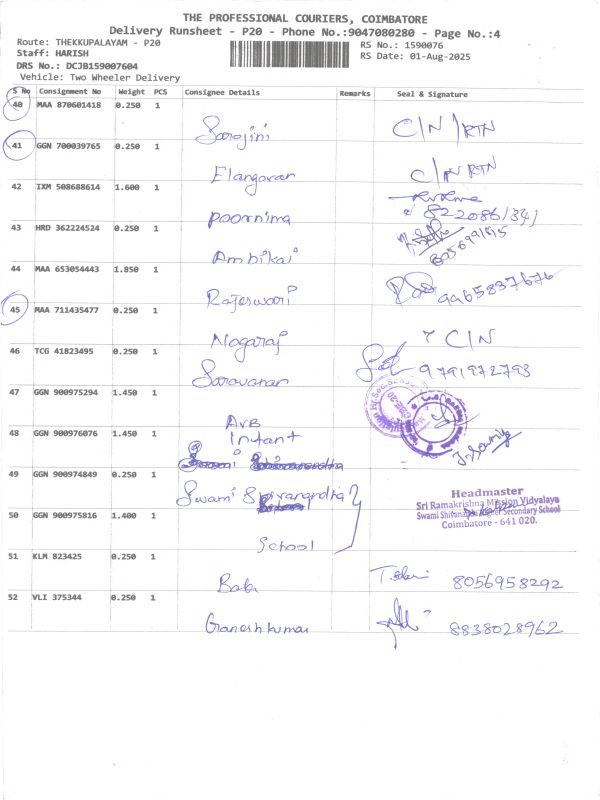 THE PROFESSIONAL COURIERS, COIMBATORE
Delivery Runsheet - P20 - Phone No.:9047080280 - Page No.:4
Route: THEKKUPALAYAM - P20
RS No.: 1590076
Staff: HARISH
RS Date: 01-Aug-2025
DRS No.: DCJB159007604
Vehicle: Two Wheeler Delivery
S No Consignment No Weight PCS Consignee Details Remarks Seal & Signature
40 MAA 870601418 0.250 1
Sarojini C/N/RTN
41 GGN 700039765 0.250 1
Elangovan C/N RTN
42 IXM 508688614 1.600 1
Poornima 8220861341
43 HRD 362224524 0.250 1
Ambikai
44 MAA 653054443 1.850 1
Rajeswari 9965837676
45 MAA 711435477 0.250 1
Nagaraj C/N
46 TCG 41823495 0.250 1
Saravanan 9791972793
47 GGN 900975294 1.450 1
48 GGN 900976076 1.450 1
49 GGN 900974849 0.250 1
Swami
50 GGN 900975816 1.400 1
School
Headmaster
Sri Ramakrishna Mission Vidyalaya
Swami Shivananda Higher Secondary School
Coimbatore - 641 020.
51 KLM 823425 0.250 1
8056958292
52 VLI 375344 0.250 1
Ganeshkumar 8838028962